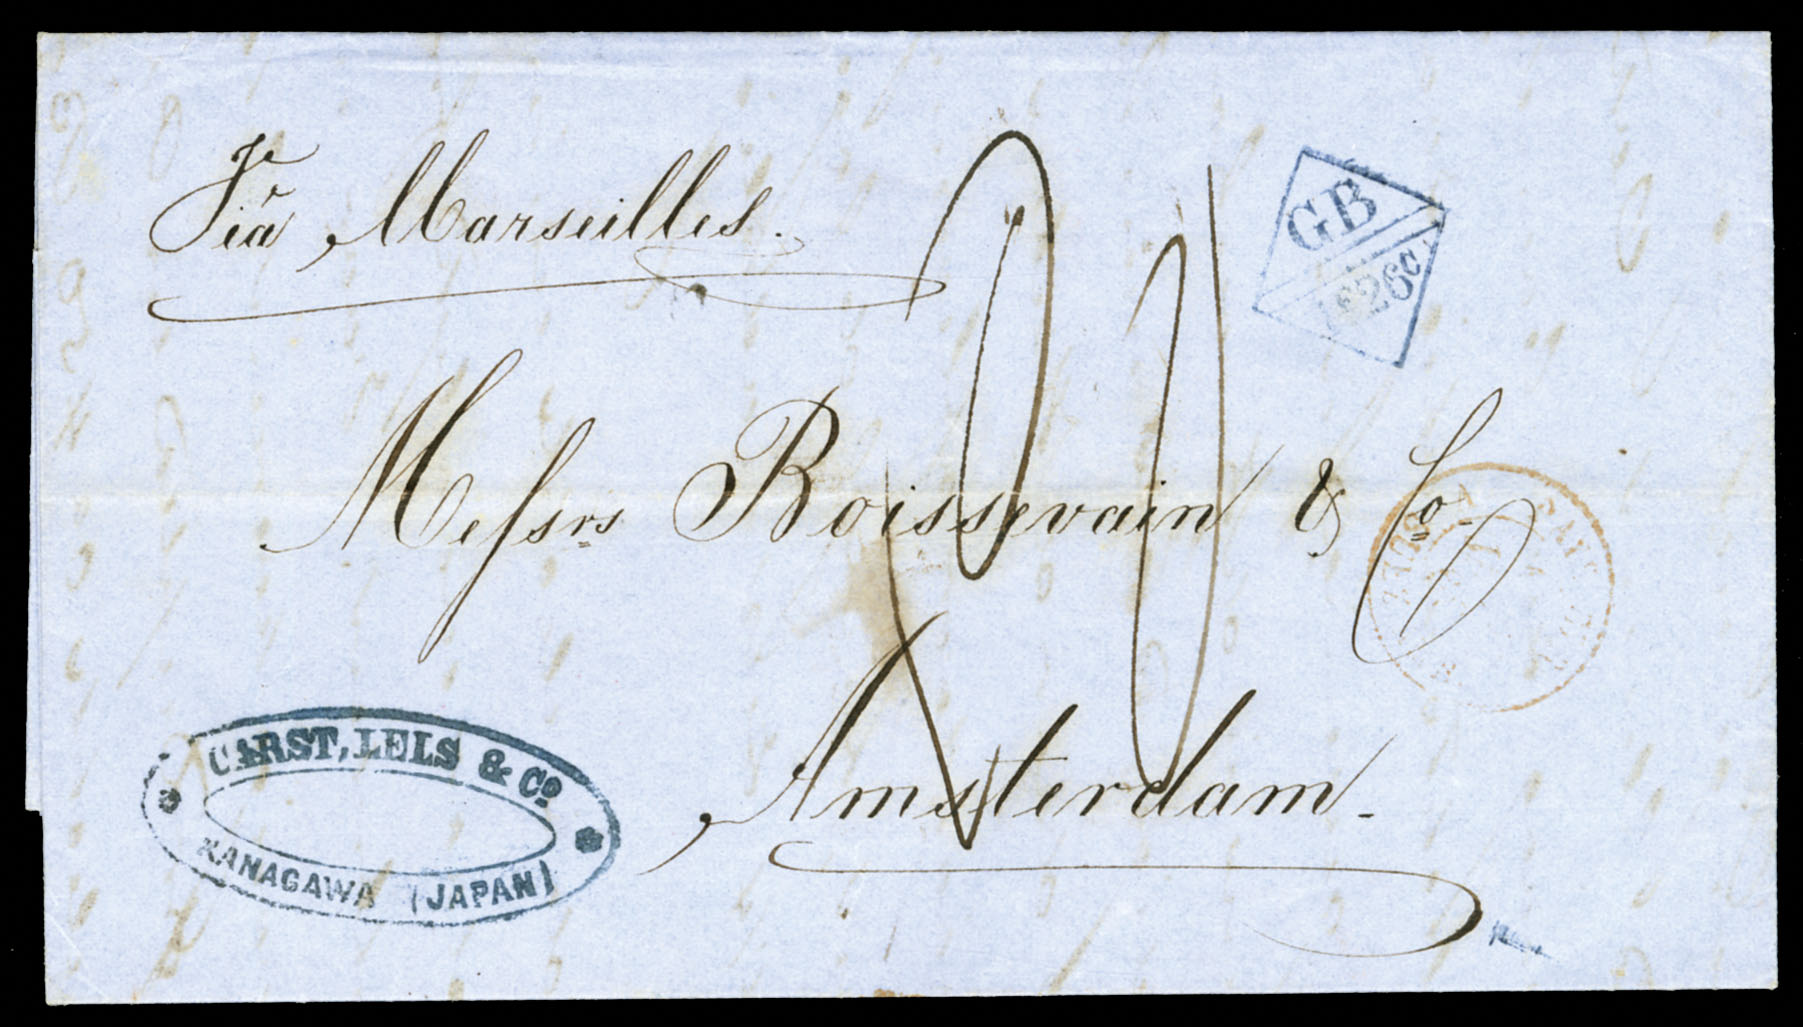 Via Marseilles.
GB
1F26c
Messrs Boissevain & Co.
Amsterdam.
CARST, LELS & Co.
KANAGAWA (JAPAN)